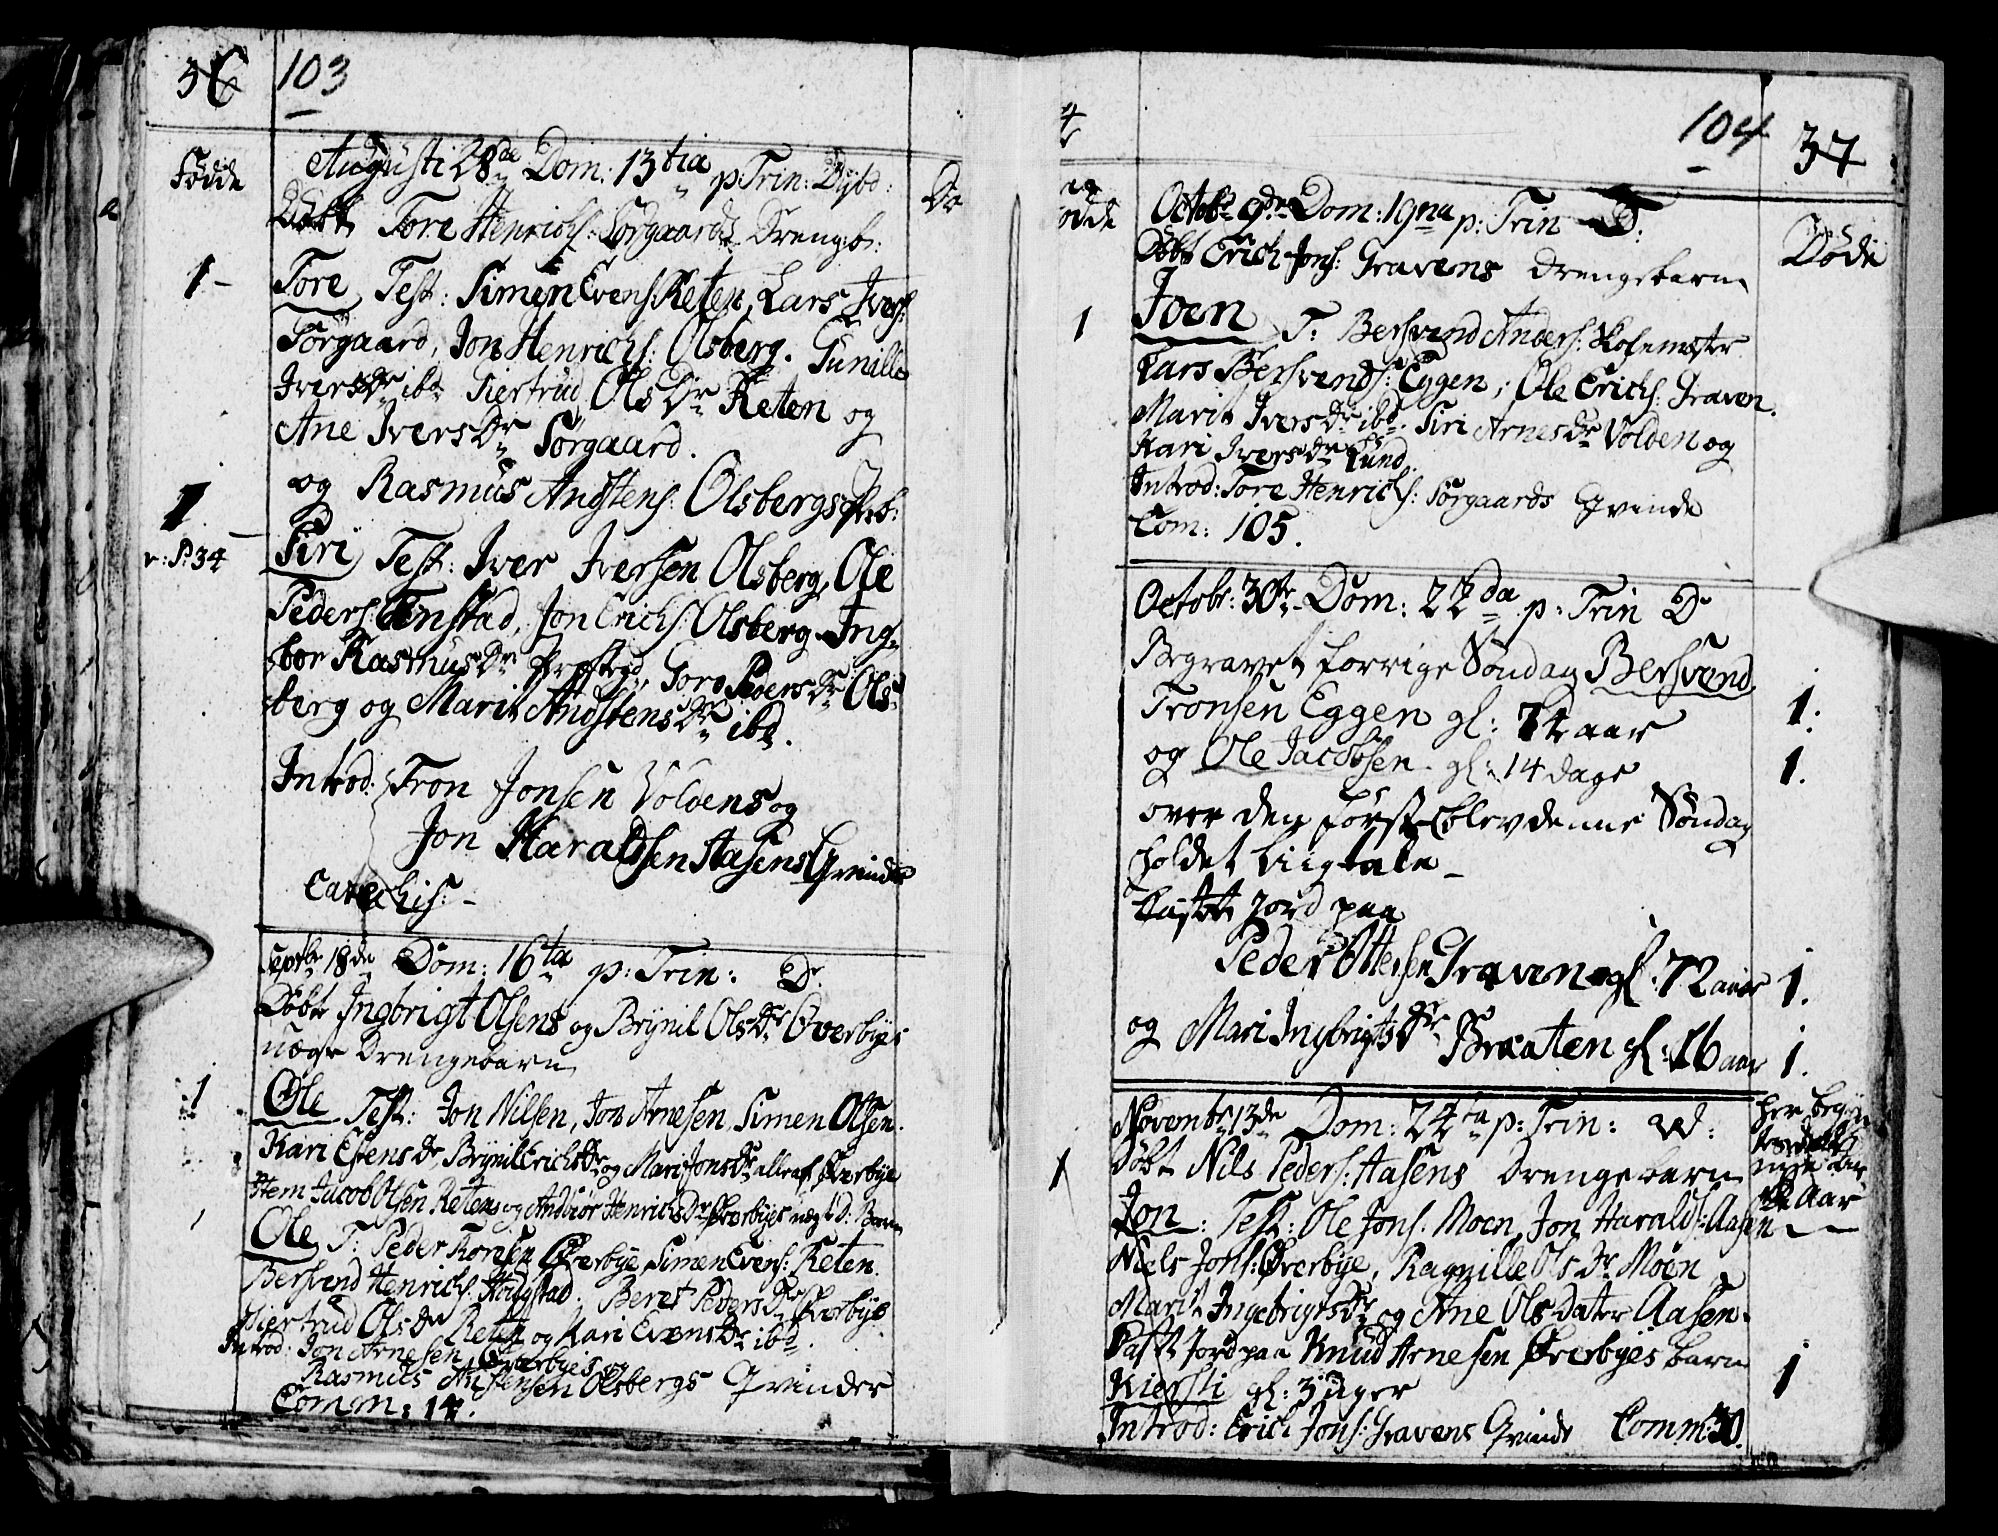 36 103
Augusti 28de Dom: 13tia p: Trin:
Fødde
Døbt Tore Henrichs: Sørgaards Drengeb:
1 -
Tore Test: Simen Evens: Reten, Lars Ivers:
Sørgaard, Jon Henrichs: Olsberg. Gunille
IversDr ibd Giertrud OlsDr Reten og
Ane IversDr Sørgaard.
og Rasmus Andstens: Olsbergs
1
v: P: 34
Siri Test: Iver Iversen Olsberg, Ole
Peders: Tenstad, Jon Erichs: Olsberg Ing-
bor RasmusDr Goro PedersDr Ols-
berg og Marit AndstensDr ibd.
Introd: Tron Jonsen Voldens og
Jon Haraldsen Aasens Qvinder
Catechis: -
Septbr 18de Dom: 16ta p: Trin: D.
Døbt Ingbrigt Olsens og Brynil OlsDr Overbyes
uægte Drengebarn
1
Ole Test: Jon Nilsen, Jon Arnesen, Simen Olsen.
Kari EstensDr, Brynil ErichsDr og Mari JonsDr alle af Overbye
Item Jacob Olsen Retens og Andriør HenrichsDr Overbyes uægt D: Barn
Ole T: Peder Toresen Overbye, Simen Evens: Reten.
Bersvend Henrichs: Beret PedersDr Overbye
Giertrud OlsDr Reten og Kari EvensDr ibd.
Introd: Jon Arnesen Overbyes og
Rasmus Andstensen Olsbergs Qvinder
Comm: 14.
104 37
Octobr 9de Dom: 19na p: Trin D:
Døde
Døbt Erich Jons: Gravens Drengebarn
1
Joen T: Bersvend Anders: Skolemester
Lars Bersvends: Eggen, Ole Erichs: Graven.
Marit IversDr ibd. Siri ArnesDr Volden og
Kari IversDr Lund.
Introd: Tore Henrichs: Sørgaards Qvinde
Com: 105.
Octobr: 30te Dom: 22da p: Trin D
Begravet forrige Søndag Bersvend
Tronsen Eggen gl: 74 aar 1:
og Ole Jacobsen gl: 14 dage 1.
over den første blev denne Søndag
holdet Liigtale -
Kastet Jord paa
Peder Ottersen Graven gl: 72 aar 1.
og Mari IngbrigtsDr Braaten gl: 16 aar 1.
Novembr 13de Dom: 24ta p: Trin:
her begyn
nye Kir
ke Aar
1
Døbt Nils Peders: Aasens Drengebarn
Jon: Test: Ole Jons: Moen, Jon Haralds: Aasen
Niels Jons: Øverbye, Ragnille OlsDr Moen
Marit IngebrigtsDr og Ane Olsdater Aasen.
Kast Jord paa Knud Arnesen Øverbyes barn
Kiersti gl: 3 uger 1
Introd: Erich Jons: Gravens Qvinde Comm: 30.